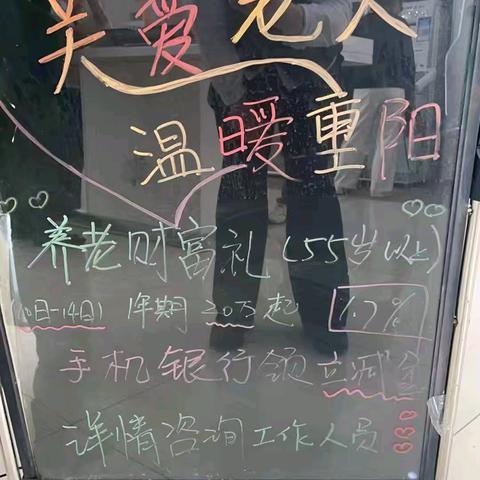 关爱老人
温暖重阳
养老财富礼(55岁以上)
(10日-14日) 1年期 20万起 1.7%
手机银行领立减金
详情咨询工作人员